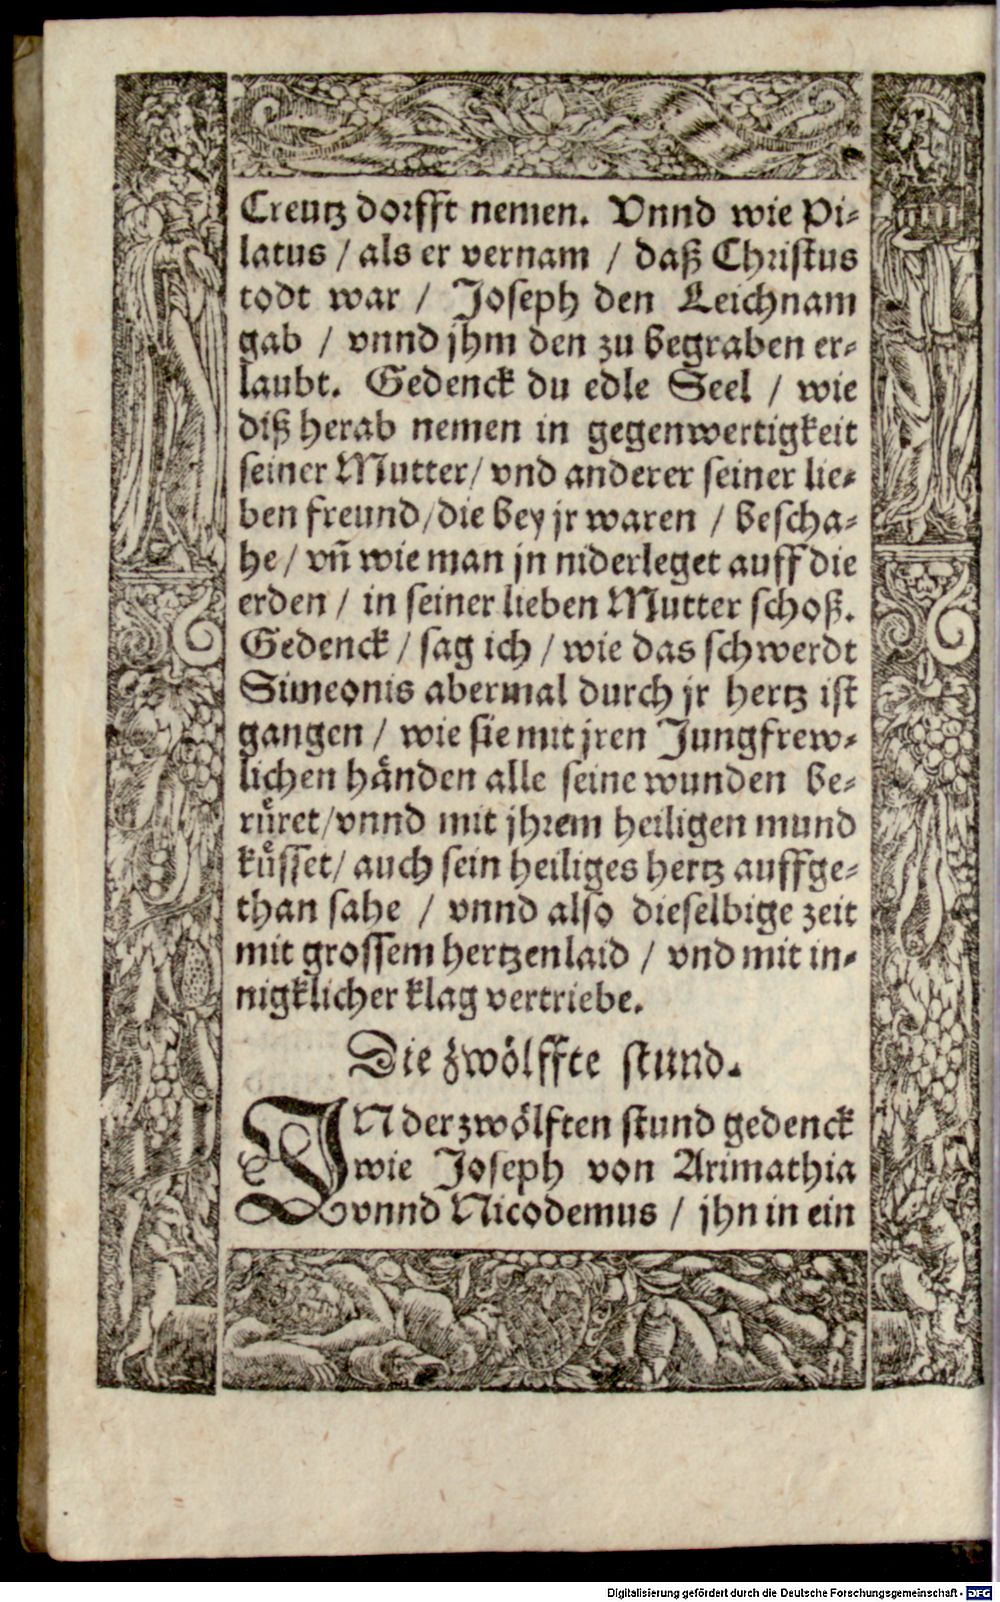 Creutz dorfft nemen. Vnnd wie Pi-
latus / als er vernam / daß Christus
todt war / Joseph den Leichnam
gab / vnnd jhm den zu begraben er-
laubt. Gedenck du edle Seel / wie
diß herab nemen in gegenwertigkeit
seiner Mutter / vnd anderer seiner lie-
ben freund / die bey jr waren / bescha-
he / vñ wie man jn niderleget auff die
erden / in seiner lieben Mutter schoß.
Gedenck / sag ich / wie das schwerdt
Simeonis abermal durch jr hertz ist
gangen / wie sie mit jren Jungfrew-
lichen haͤnden alle seine wunden be-
ruͤret / vnnd mit jhrem heiligen mund
kuͤsset / auch sein heiliges hertz auffge-
than sahe / vnnd also dieselbige zeit
mit grossem hertzenlaid / vnd mit in-
nigklicher klag vertriebe.
Die zwoͤlffte stund.
JN der zwoͤlften stund gedenck
wie Joseph von Arimathia
vnnd Nicodemus / jhn in ein
Digitalisierung gefördert durch die Deutsche Forschungsgemeinschaft - DFG